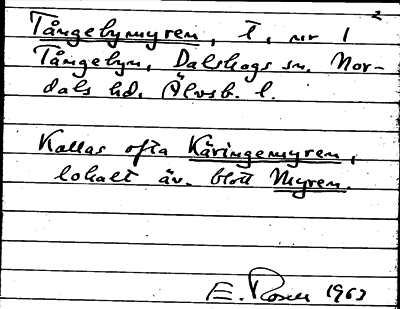 2
Tångebymyren, t, nr 1
Tångebyn, Dalskogs sn. Nor-
dals hd. Älvsb. l.
Kallas ofta Käringemyren,
lokalt äv. blott Myren.
E. Rosell 1963